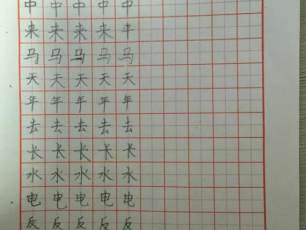 中 中 中 中 中
来 来 来 来 丰
马 马 马 马 马
天 天 天 天 天
年 年 年 年 年
去 去 去 去 去
长 长 长 长 长
水 水 水 水 水
电 电 电 电 电
反 反 反 反 反